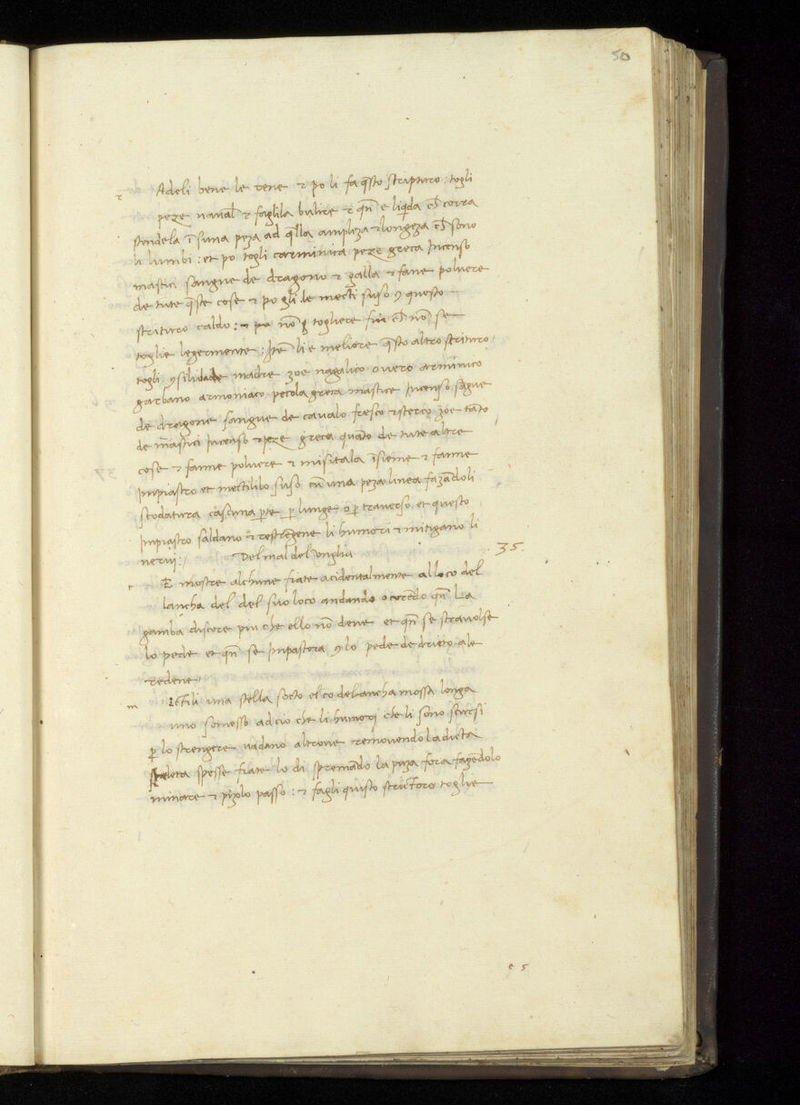 50
r Adeli bene le vene et po li fa q̄sto stripturo: togli
peze naual et faglila bulire et qñ e liq̄da ch̄ corra
stendela ī suma peza ad q̄lla ampleza et longeza ch̄ sono
li lumbi: et po togli carminica peze greca Incenso
mastici sangue de dragono et galla et fane poluere
de tute q̄ste cose et po gli le mecti suso questo
strituro caldo: et nō togliere fin ch̄ nō se
toglie legermente: Itē li e meliore q̄sto altro strituro
togli madre zoe nagalico ouero arminico
garbano armoniaco pecola greca mastice Incenso sāgue
de dragone sangue de caualo fresco et sterco zoe tāto
de mastici Incenso et peze greca quāto de tute altre
cose et fanne poluere et misitala īsieme et fanne
Impiastro et mectililo suso cū una peza linea fazādoli
scodatura cascuna p̄te p̄ lunge o p̄ trauerso et questo
Impiastro saldano et restrēgene li humori et mitigano li
nerui: Del mal del onglia 35.
E mostre alchune fiate acidentalmente al loco del
lancha del del suo loco andando o corēdo qñ La
gamba discore piu che ello nō deue et qñ se strauolse
lo pede et qñ se Inpastora lo pede de drieto ale
redene
m ectili una stella socto el co del ancha mossa longa
uno somesso ad cio che li humori che li sono scursi
p̄ lo strengere uadano altroue remouendo la dicta
steleta spesse fiate lo di spremādo la puza fora facēdolo
minare et pizolo passo: et fagli quisto strictoro toglie
e 5